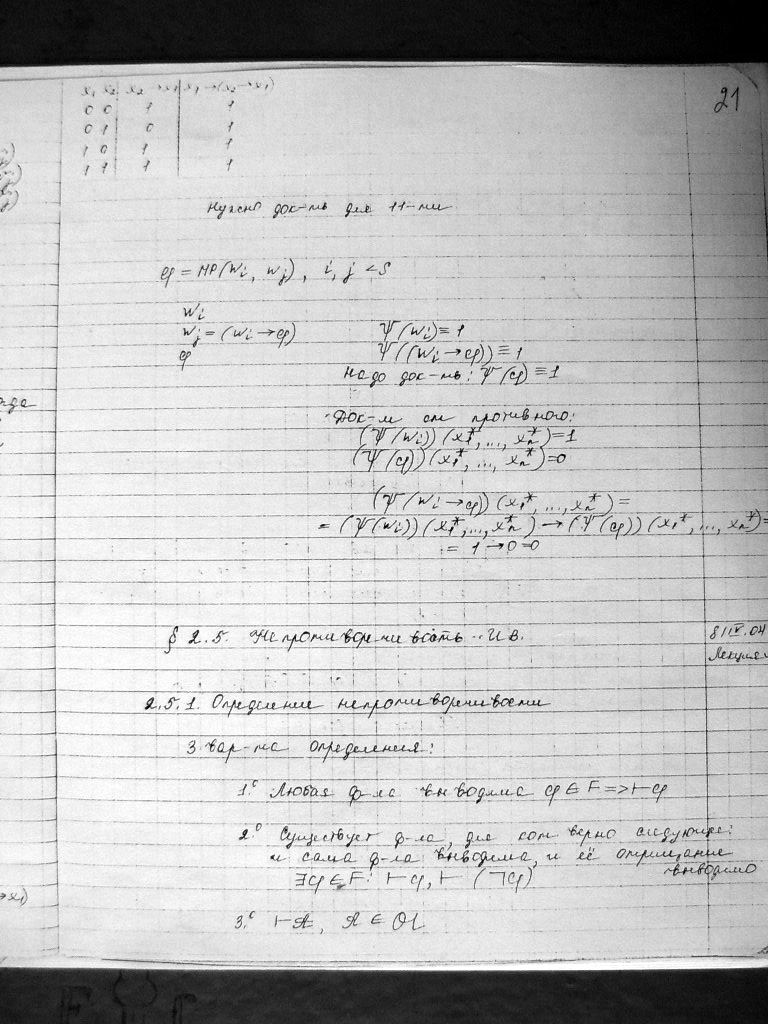 21
x₁ x₂ | x₂→x₁ | x₁→(x₂→x₁)
0 0 | 1 | 1
0 1 | 0 | 1
1 0 | 1 | 1
1 1 | 1 | 1
Нужно док-ть для 11-ти
φ = MP(wi, wj), i, j < s
wi
wj = (wi → φ) Ψ(wi) ≡ 1
φ Ψ((wi → φ)) ≡ 1
Надо док-ть: Ψ(φ) ≡ 1
Док-м от противного:
(Ψ(wi))(x₁*, ..., xₙ*) = 1
(Ψ(φ))(x₁*, ..., xₙ*) = 0
(Ψ(wi → φ))(x₁*, ..., xₙ*) =
= (Ψ(wi))(x₁*, ..., xₙ*) → (Ψ(φ))(x₁*, ..., xₙ*) =
= 1 → 0 = 0
§ 2.5. Непротиворечивость И.В.
8/IV.04
Лекция
2.5.1. Определение непротиворечивости
3 вар-та определения:
1.° Любая ф-ла выводима φ ∈ F => ⊢ φ
2.° Существует ф-ла, для кот верно следующее:
и сама ф-ла выводима, и её отрицание
выводимо
∃φ ∈ F: ⊢ φ, ⊢ (¬φ)
3.° ⊢ A, A ∈ Ol